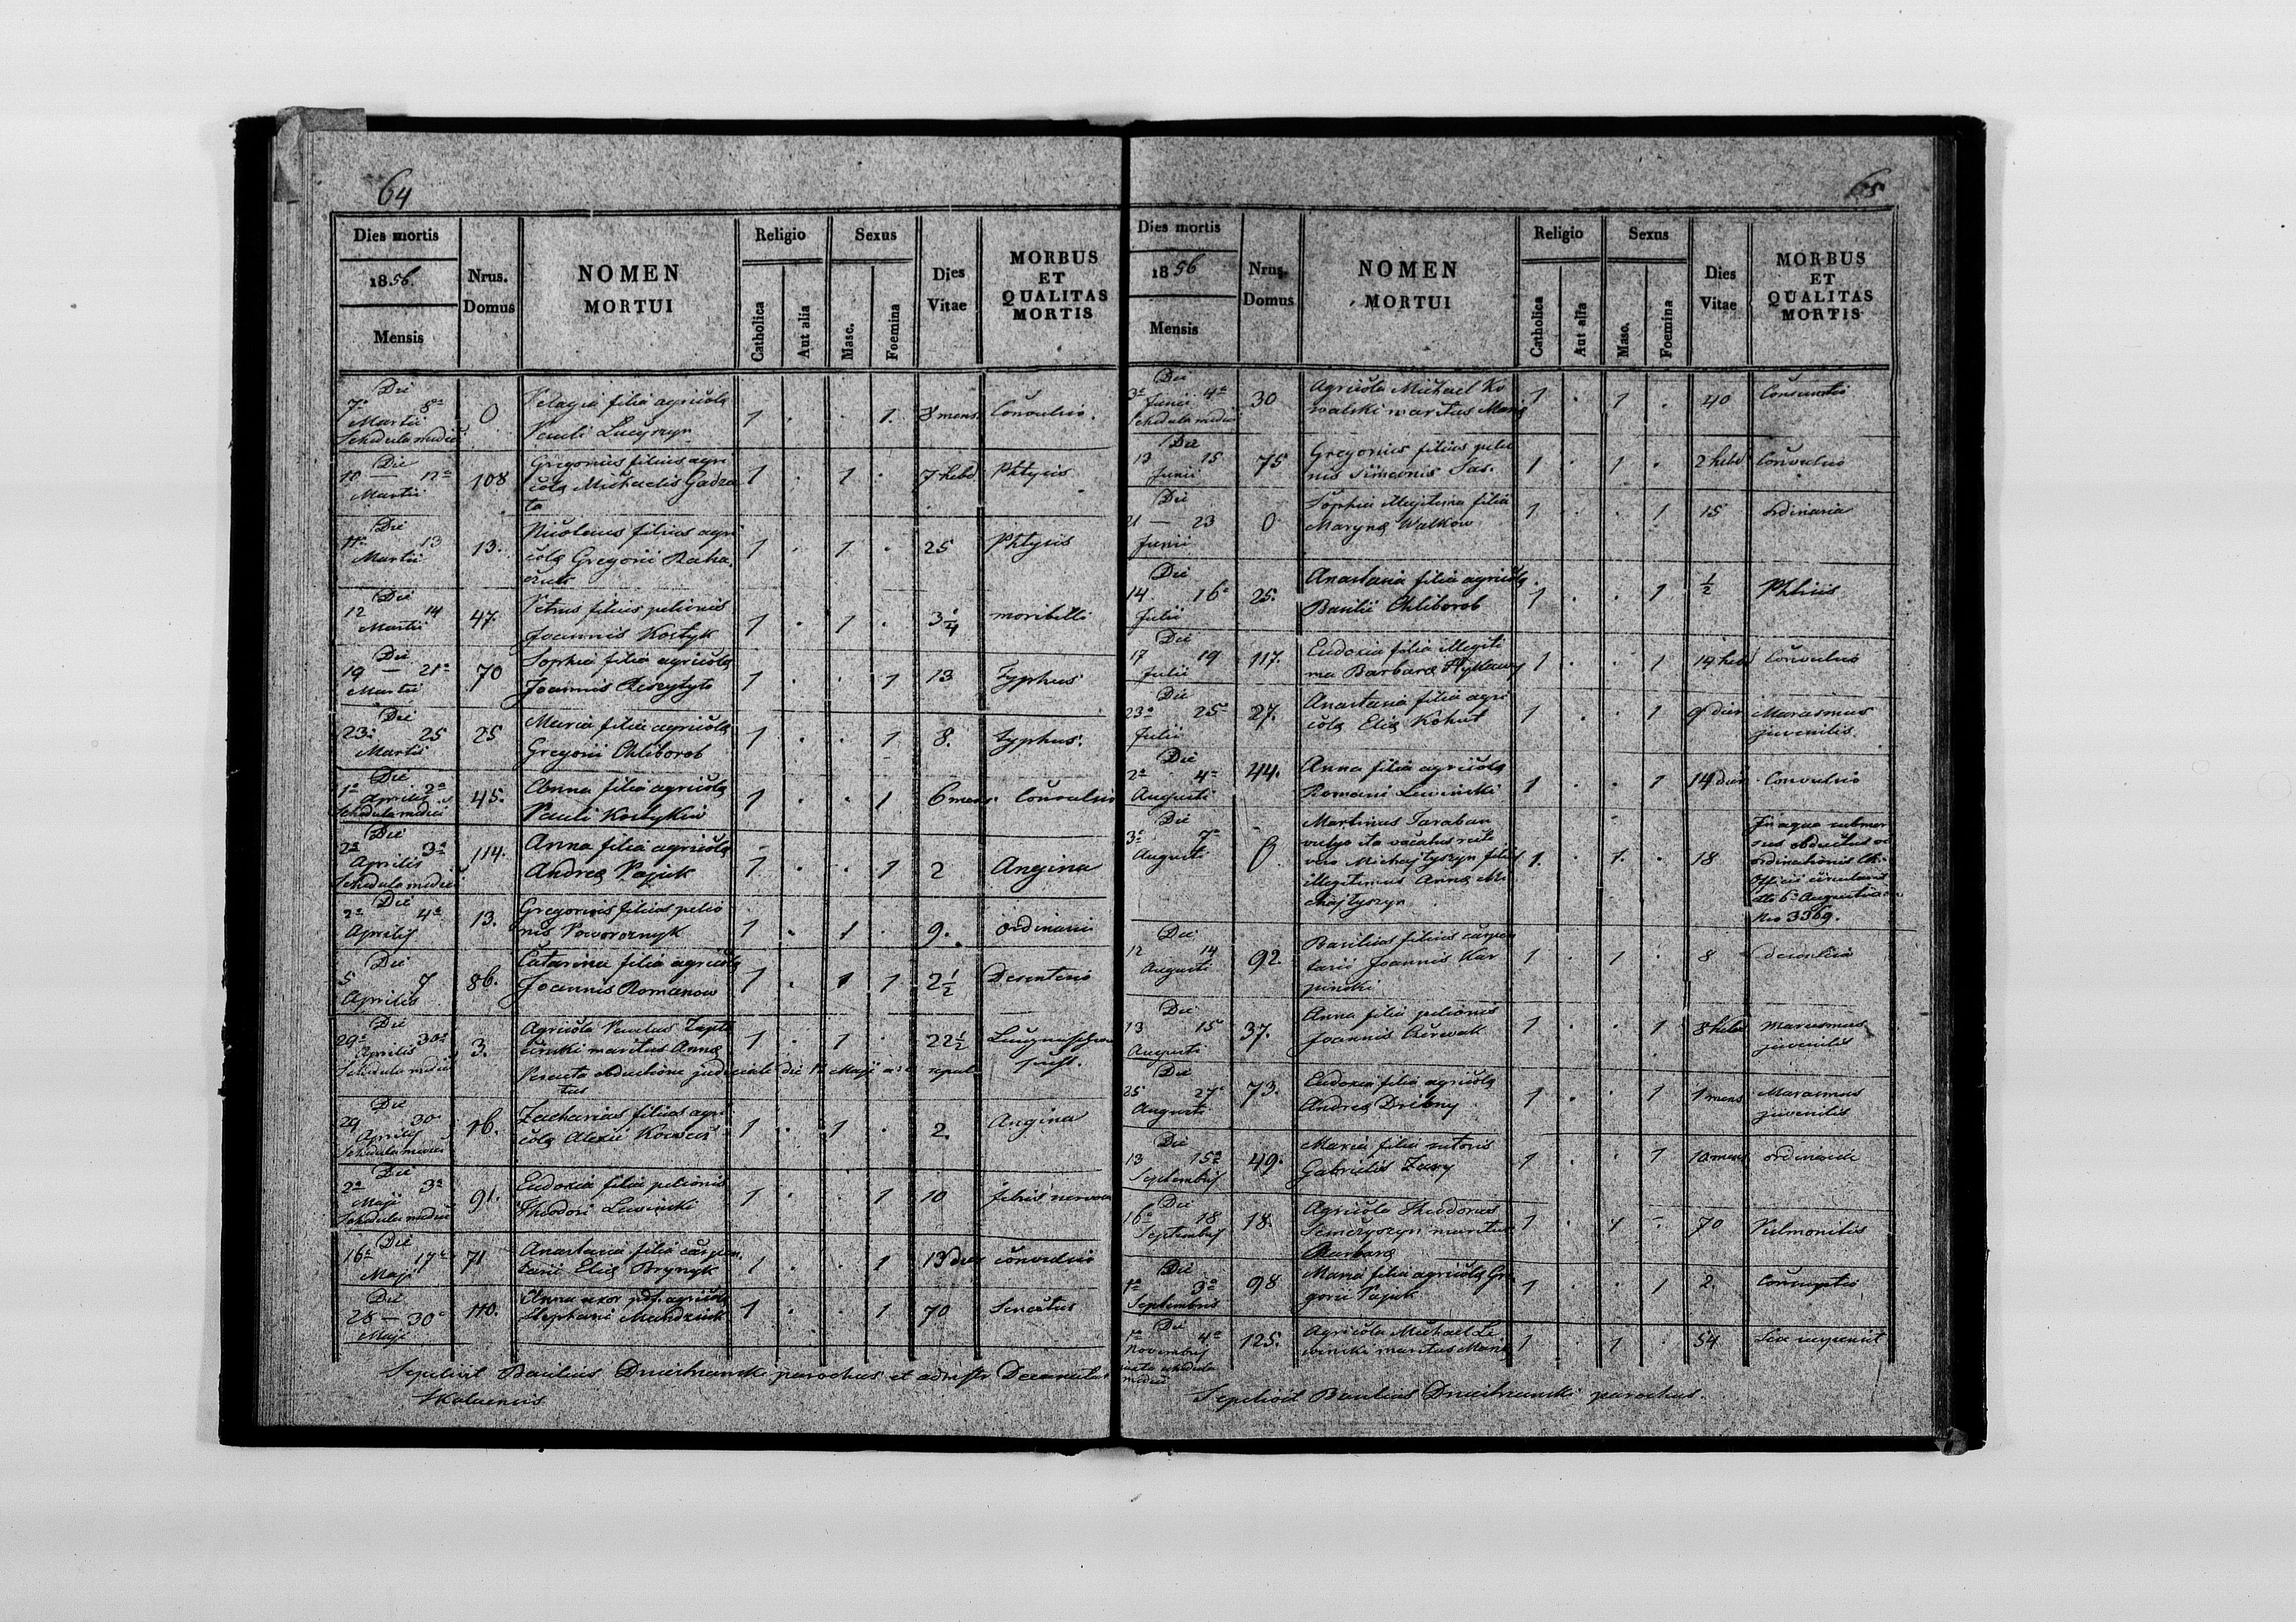 64
Dies mortis
1856.
Mensis
Nrus.
Domus
NOMEN
MORTUI
Religio
Catholica
Aut alia
Sexus
Masc.
Foemina
Dies
Vitae
MORBUS
ET
QUALITAS
MORTIS
Die
7a 8a
Martii
Schedula medici
0
Pelagia filia agricolæ
Pauli
1 . . 1. 8 mens. Convulsio.
Die
10 — 12a
Martii
108
Gregorius filius agri
colæ Michaelis Gadza
ła
1 . 1 . 7 hebd Phtysis
Die
11a 13
Martii
13.
Nicolaus filius agri
colæ Gregorii
1 . 1 . 25 Phtysis
Die
12 14
Martii
47.
Petrus filius pelionis
Joannis Kostyk
1 . 1 . 3 1/4 moribilli
Die
19 — 21a
Martii
70
Sophia filia agricolæ
Joannis
1 . . 1 13 Typhus
Die
23a 25
Martii
25
Maria filia agricolæ
Gregorii Chliborob
1 . . 1 8. Typhus.
Die
1a 2a
Aprilis
Schedula medici
45.
Anna filia agricolæ
Pauli Kostykiw
1 . . 1 6 mens Convulsio
Die
2a 3a
Aprilis
Schedula medici
114.
Anna filia agricolæ
Andreæ Pajuk
1 . . 1 2 Angina
Die
2a 4a
Aprilis
13.
Gregorius filius pelio
nis Poworoznyk
1 . 1 . 9. ordinaria
Die
5 7
Aprilis
86.
Catarina filia agricolæ
Joannis Romanow
1 . 1 1 2 1/2 Desenteria
Die
29a 30a
Aprilis
Schedula medici
3.
Agricola Paulus
maritus Annæ
1 . 1 . 22 1/2
Peracta obductione judiciali die Maji sepul
tus
Die
29 30
Aprilis
Schedula medici
16.
Zacharias filius agri
colæ Alexii
1 . 1 . 2. Angina
Die
2a 3a
Maji
Schedula medici
91.
Eudoxia filia pelionis
Theodori Lewicki
1 . . 1 10 febris nervosa
Die
16a 17a
Maji
71
Anastasia filia carpen
tarii Eliæ Brynyk
1 . . 1 13 dier convulsio
Die
28 — 30a
Maji
110.
Anna uxor agricolæ
Stephani Mandziuk
1 . . 1 70 Senectus
Sepelivit Basilius parochus et admstr Decanatus

65
Dies mortis
1856
Mensis
Nrus.
Domus
NOMEN
MORTUI
Religio
Catholica
Aut alia
Sexus
Masc.
Foemina
Dies
Vitae
MORBUS
ET
QUALITAS
MORTIS
Die
3a 4a
Junii
Schedula medici
30
Agricola Michael Ko
walski maritus Mariæ
1 . 1 . 40 Consumtio
Die
13 15
Junii
75
Gregorius filius pelio
nis Simeonis
1 . 1 . 2 hebd Convulsio
Die
21 — 23
Junii
0
Sophia illegitima filia
Marynæ Walkow
1 . . 1 15 ordinaria
Die
14 16a
Julii
25.
Anastasia filia agricolæ
Basilii Chliborob
1 . . 1 1/2 Phtisis
Die
17 19
Julii
117.
Eudoxia filia illegiti
ma Barbaræ
1 . . 1 14 hebd Convulsio
Die
23a 25a
Julii
27.
Anastasia filia agri
colæ Eliæ Kohut
1 . . 1 9 dier Marasmus
juvenilis.
Die
2a 4a
Augusti
44.
Anna filia agricolæ
Romani Lewicki
1 . . 1 14 dier Convulsio
Die
3a 7a
Augusti
0.
Martinus Taraban
vulgo ita vocatus recte
vero Michajłyszyn filius
illegitimus Annæ Mi
chajłyszyn
1. . 1. . 18
In aqua submer
sus obductus
ordinationis
Officii circularis
dto 6a Augusti
Nro 3369.
Die
12 14
Augusti
92.
Basilius filius carpen
tarii Joannis Kar
pinski
1 . 1 . 8 desenteria
Die
13 15
Augusti
37.
Anna filia pelionis
Joannis
1 . . 1 8 hebd Marasmus
juvenilis
Die
25 27a
Augusti
73.
Eudoxia filia agricolæ
Andreæ Dribny
1 . . 1 1 mens Marasmus
juvenilis
Die
13 15a
Septembris
49.
Maria filia sutoris
Gabrielis
1 . . 1 10 mens ordinaria
Die
16a 18
Septembris
18.
Agricola Theodorus
maritus
Barbaræ
1 . 1 . 70 Pulmonitis
Die
1a 3a
Septembris
98
Maria filia agricolæ Gre
gorii Pajuk
1 . . 1 2. Consumptio
Die
1a 4a
Novembris
juxta schedula
medici
125.
Agricola Michael Le
wicki maritus Mariæ
1 . 1 . 54 Sese suspensit
Sepelivit Basilius parochus.